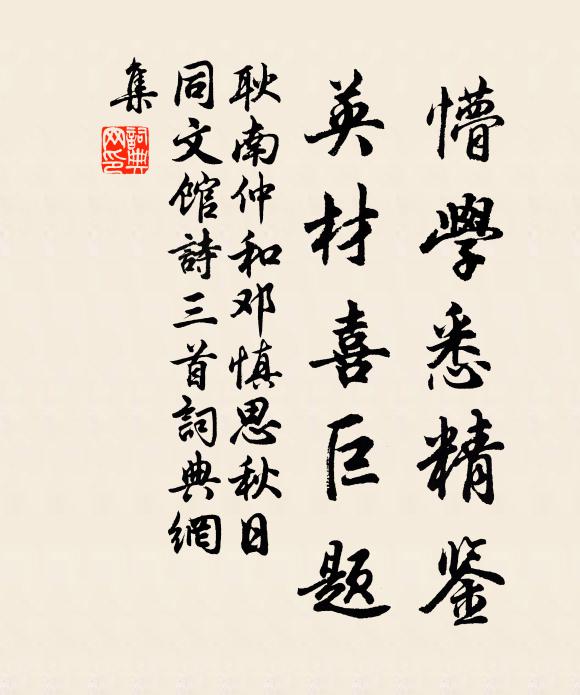 懵學悉精鉴
英材喜巨题
耿南仲和邓慎思秋日
同文馆詩三首詞典網
集
詞典網印